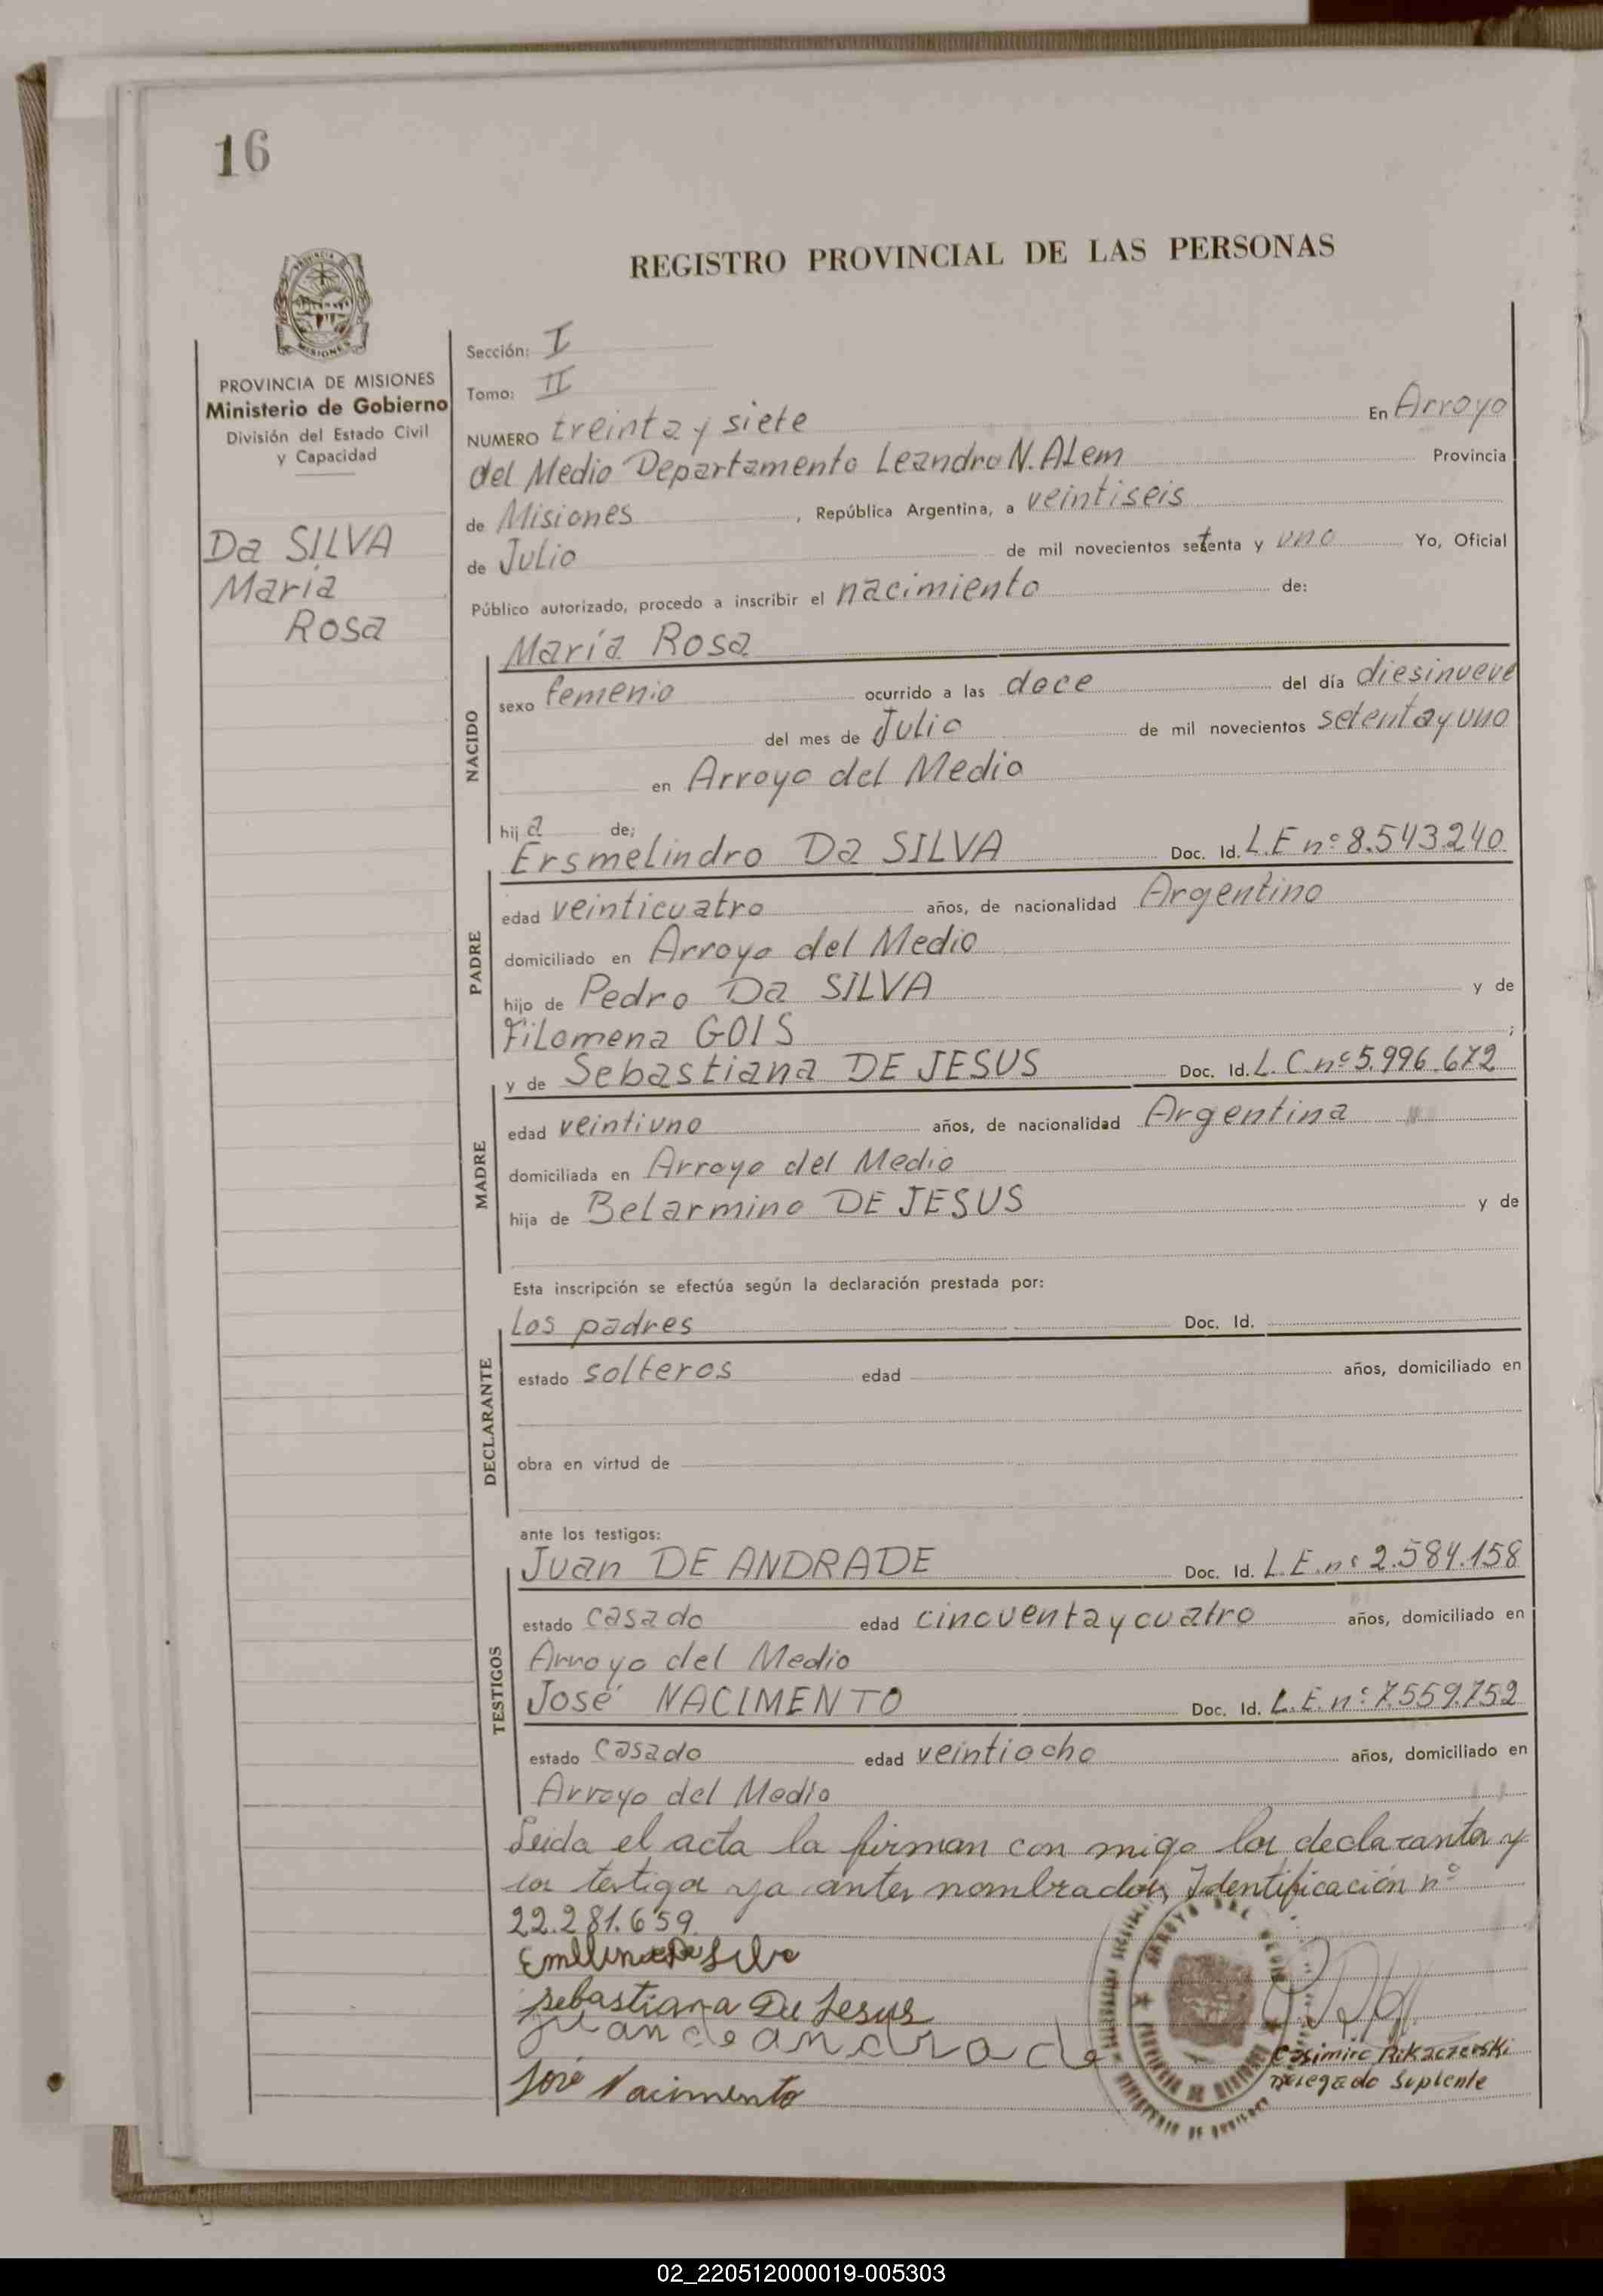 16
REGISTRO PROVINCIAL DE LAS PERSONAS
MISIONES
PROVINCIA DE MISIONES
Ministerio de Gobierno
División del Estado Civil
y Capacidad
Da SILVA
María
Rosa
Sección: I
Tomo: II
NUMERO treinta y siete En Arroyo
del Medio Departamento Leandro N. ALem Provincia
de Misiones , República Argentina, a veintiseis
de Julio de mil novecientos setenta y uno Yo, Oficial
Público autorizado, procedo a inscribir el nacimiento de:
NACIDO
María Rosa
sexo femenio ocurrido a las doce del día diesinueve
del mes de Julio de mil novecientos setenta y uno
en Arroyo del Medio
hij a de;
PADRE
Ersmelindro Da SILVA Doc. Id. L.E nº 8.543.240
edad veinticuatro años, de nacionalidad Argentino
domiciliado en Arroyo del Medio
hijo de Pedro Da SILVA y de
Filomena GOIS ;
MADRE
y de Sebastiana DE JESUS Doc. Id. L. C. nº 5.996.672
edad veintiuno años, de nacionalidad Argentina
domiciliada en Arroyo del Medio
hija de Belarmino DE JESUS y de
Esta inscripción se efectúa según la declaración prestada por:
DECLARANTE
Los padres Doc. Id.
estado solteros edad años, domiciliado en
obra en virtud de
ante los testigos:
TESTIGOS
Juan DE ANDRADE Doc. Id. L.E. nº 2.584.158
estado casado edad cincuenta y cuatro años, domiciliado en
Arroyo del Medio
José NACIMENTO Doc. Id. L.E. nº 7.559.752
estado casado edad veintiocho años, domiciliado en
Arroyo del Medio
Leida el acta la firman con migo los declarantes y
los testigos ya antes nombrados, Identificación nº
22.281.659
Da Silva
Sebastiana De Jesus
juan de andrade
José Nacimento
Casimiro Rikaczevski
Delegado Suplente
02_220512000019-005303